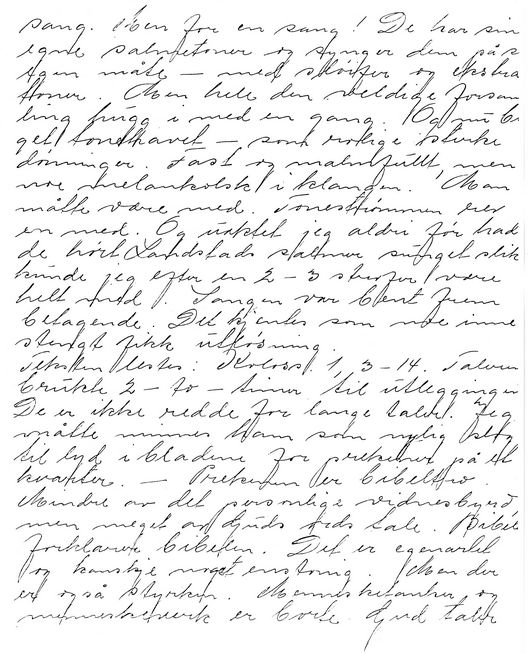 sang. Men for en sang! De har sin
egne salmetoner og synger dem på s
egen måte – med sløifer og ekstra
toner. Men hele den veldige forsam
ling hugg i med en gang. Og nu
get tonehavet – som rolige sterke
dønninger. Fast og malmfullt, men
noe melankolsk i klangen. Man
måtte være med. Tonestrømmen rev
en med. Og uaktet jeg aldri før had
de hørt Landstads salmer sunget slik
kunde jeg efter en 2 – 3 strofer være
helt med. Sangen var bent frem
betagende. Det kjentes som noe inne
stengt fikk utløsning.
Teksten lestes: Koloss. 1, 3 – 14. Taleren
brukte 2 – to – timer til utleggingen
De er ikke redde for lange taler. Jeg
måtte minnes ham som nylig slog
til lyd i bladene for prekener på et
kvarter. – Prekenen er bibeltro.
Mindre av det personlige vidnesbyrd
men meget av Guds ords tale. Bibel
forklarer bibelen. Det er egenartet
og kanskje noget enstonig. Men der
er også styrken. Mennesketanker og
menneskeverk er borte. Gud taler